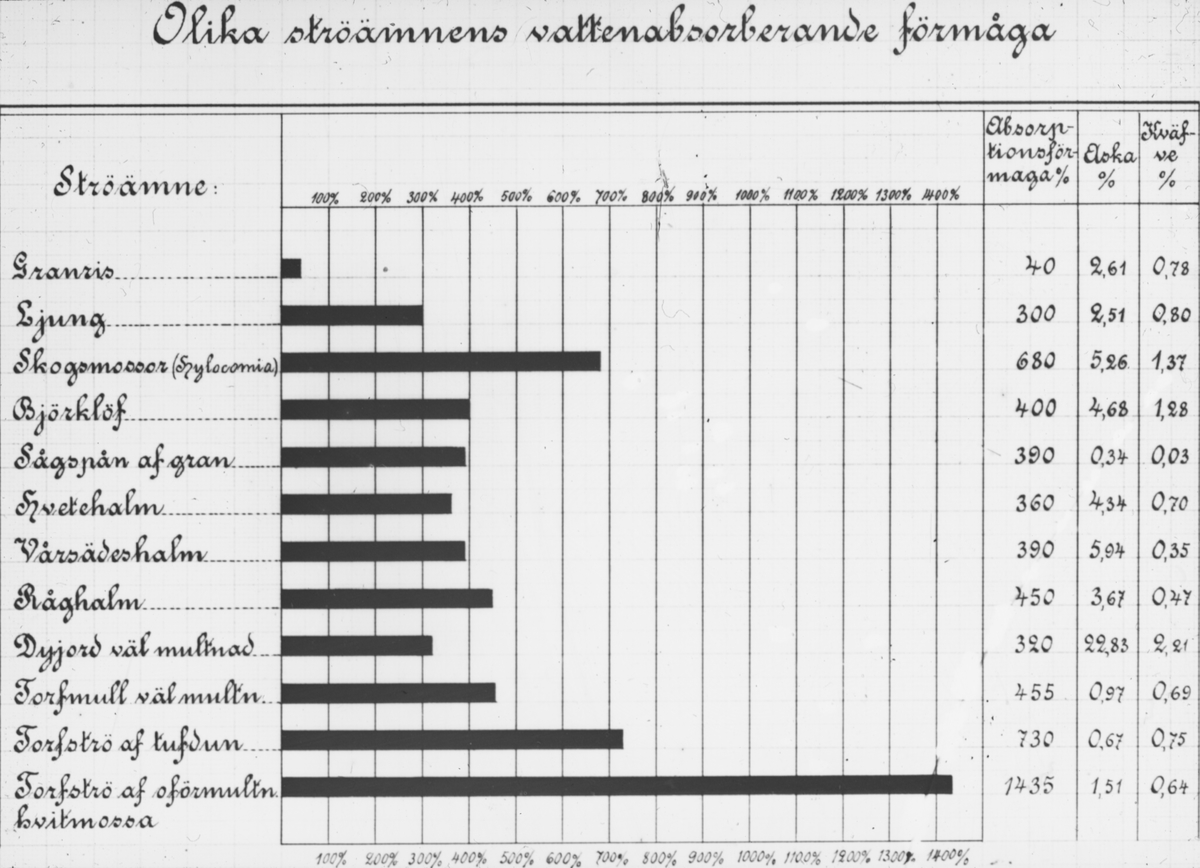 Olika ströämnens vattenabsorberande förmåga
Ströämne:
100% 200% 300% 400% 500% 600% 700% 800% 900% 1000% 1100% 1200% 1300% 1400%
Absorp-
tionsför-
maga %
Aska
%
Kväf-
ve
%
Granris 40 2,61 0,78
Ljung 300 2,51 0,80
Skogsmossor (Hylocomia) 680 5,26 1,37
Björklöf 400 4,68 1,28
Sågspån af gran 390 0,34 0,03
Hvetehalm 360 4,34 0,70
Vårsädeshalm 390 5,94 0,35
Råghalm 450 3,67 0,47
Dyjord väl multnad 320 22,83 2,21
Torfmull väl multn. 455 0,97 0,69
Torfströ af tufdun 730 0,67 0,75
Torfströ af oförmultn. 1435 1,51 0,64
hvitmossa
100% 200% 300% 400% 500% 600% 700% 800% 900% 1000% 1100% 1200% 1300% 1400%